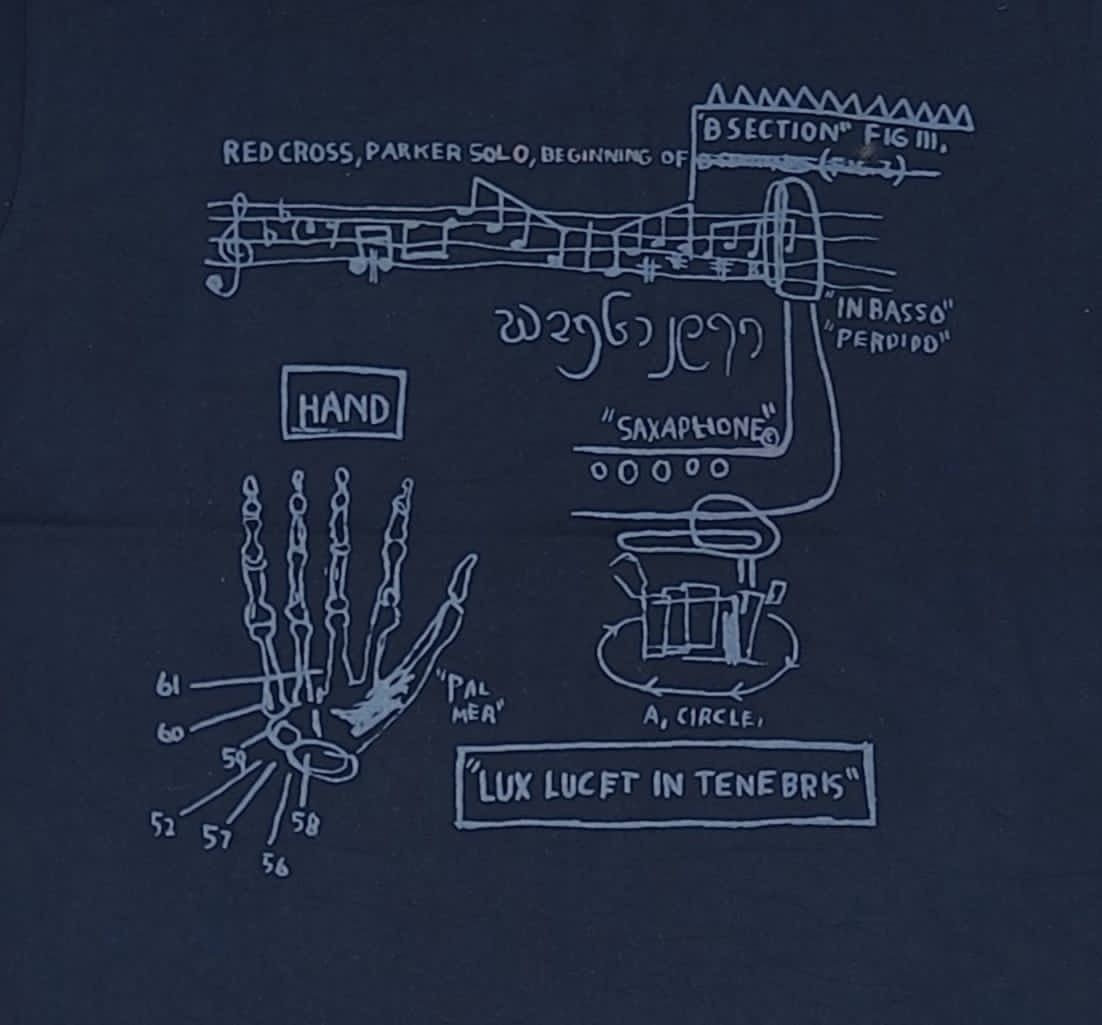 "B SECTION" FIG III.
RED CROSS, PARKER SOLO, BEGINNING OF
"IN BASSO"
"PERDIDO"
HAND
"SAXAPHONE"©
"PAL
MER"
61
60
59
52
57
58
56
A, CIRCLE,
"LUX LUCET IN TENEBRIS"